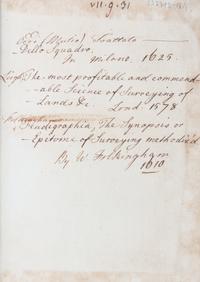 vii.g.31
(Mutio)
Dello Squadro.
In Milano. 1625.
Leigh The most profitable and commend
-able Science of Surveying of
Lands &c. Lond 1578
Feudigraphia, The Synopsis or
Epitome of Surveying methodiz'd
By W. Folkingham
1610